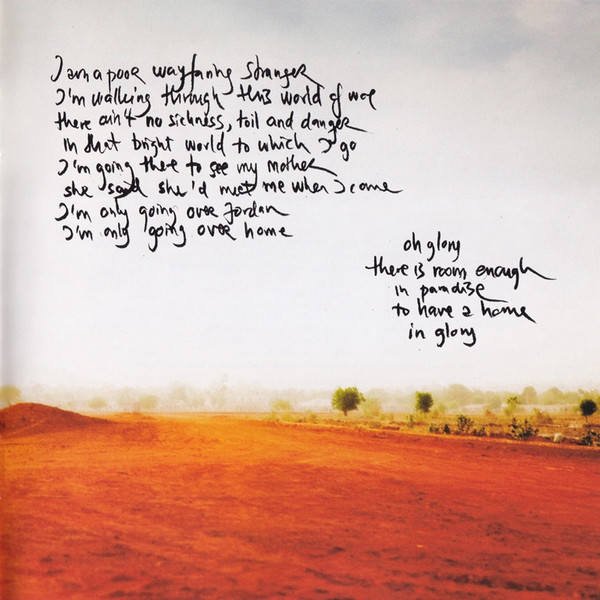 I am a poor wayfaring stranger
I'm walking through this world of woe
there ain't no sickness, toil and danger
in that bright world to which I go
I'm going there to see my mother
she said she'd meet me when I come
I'm only going over Jordan
I'm only going over home
oh glory
there is room enough
in paradise
to have a home
in glory